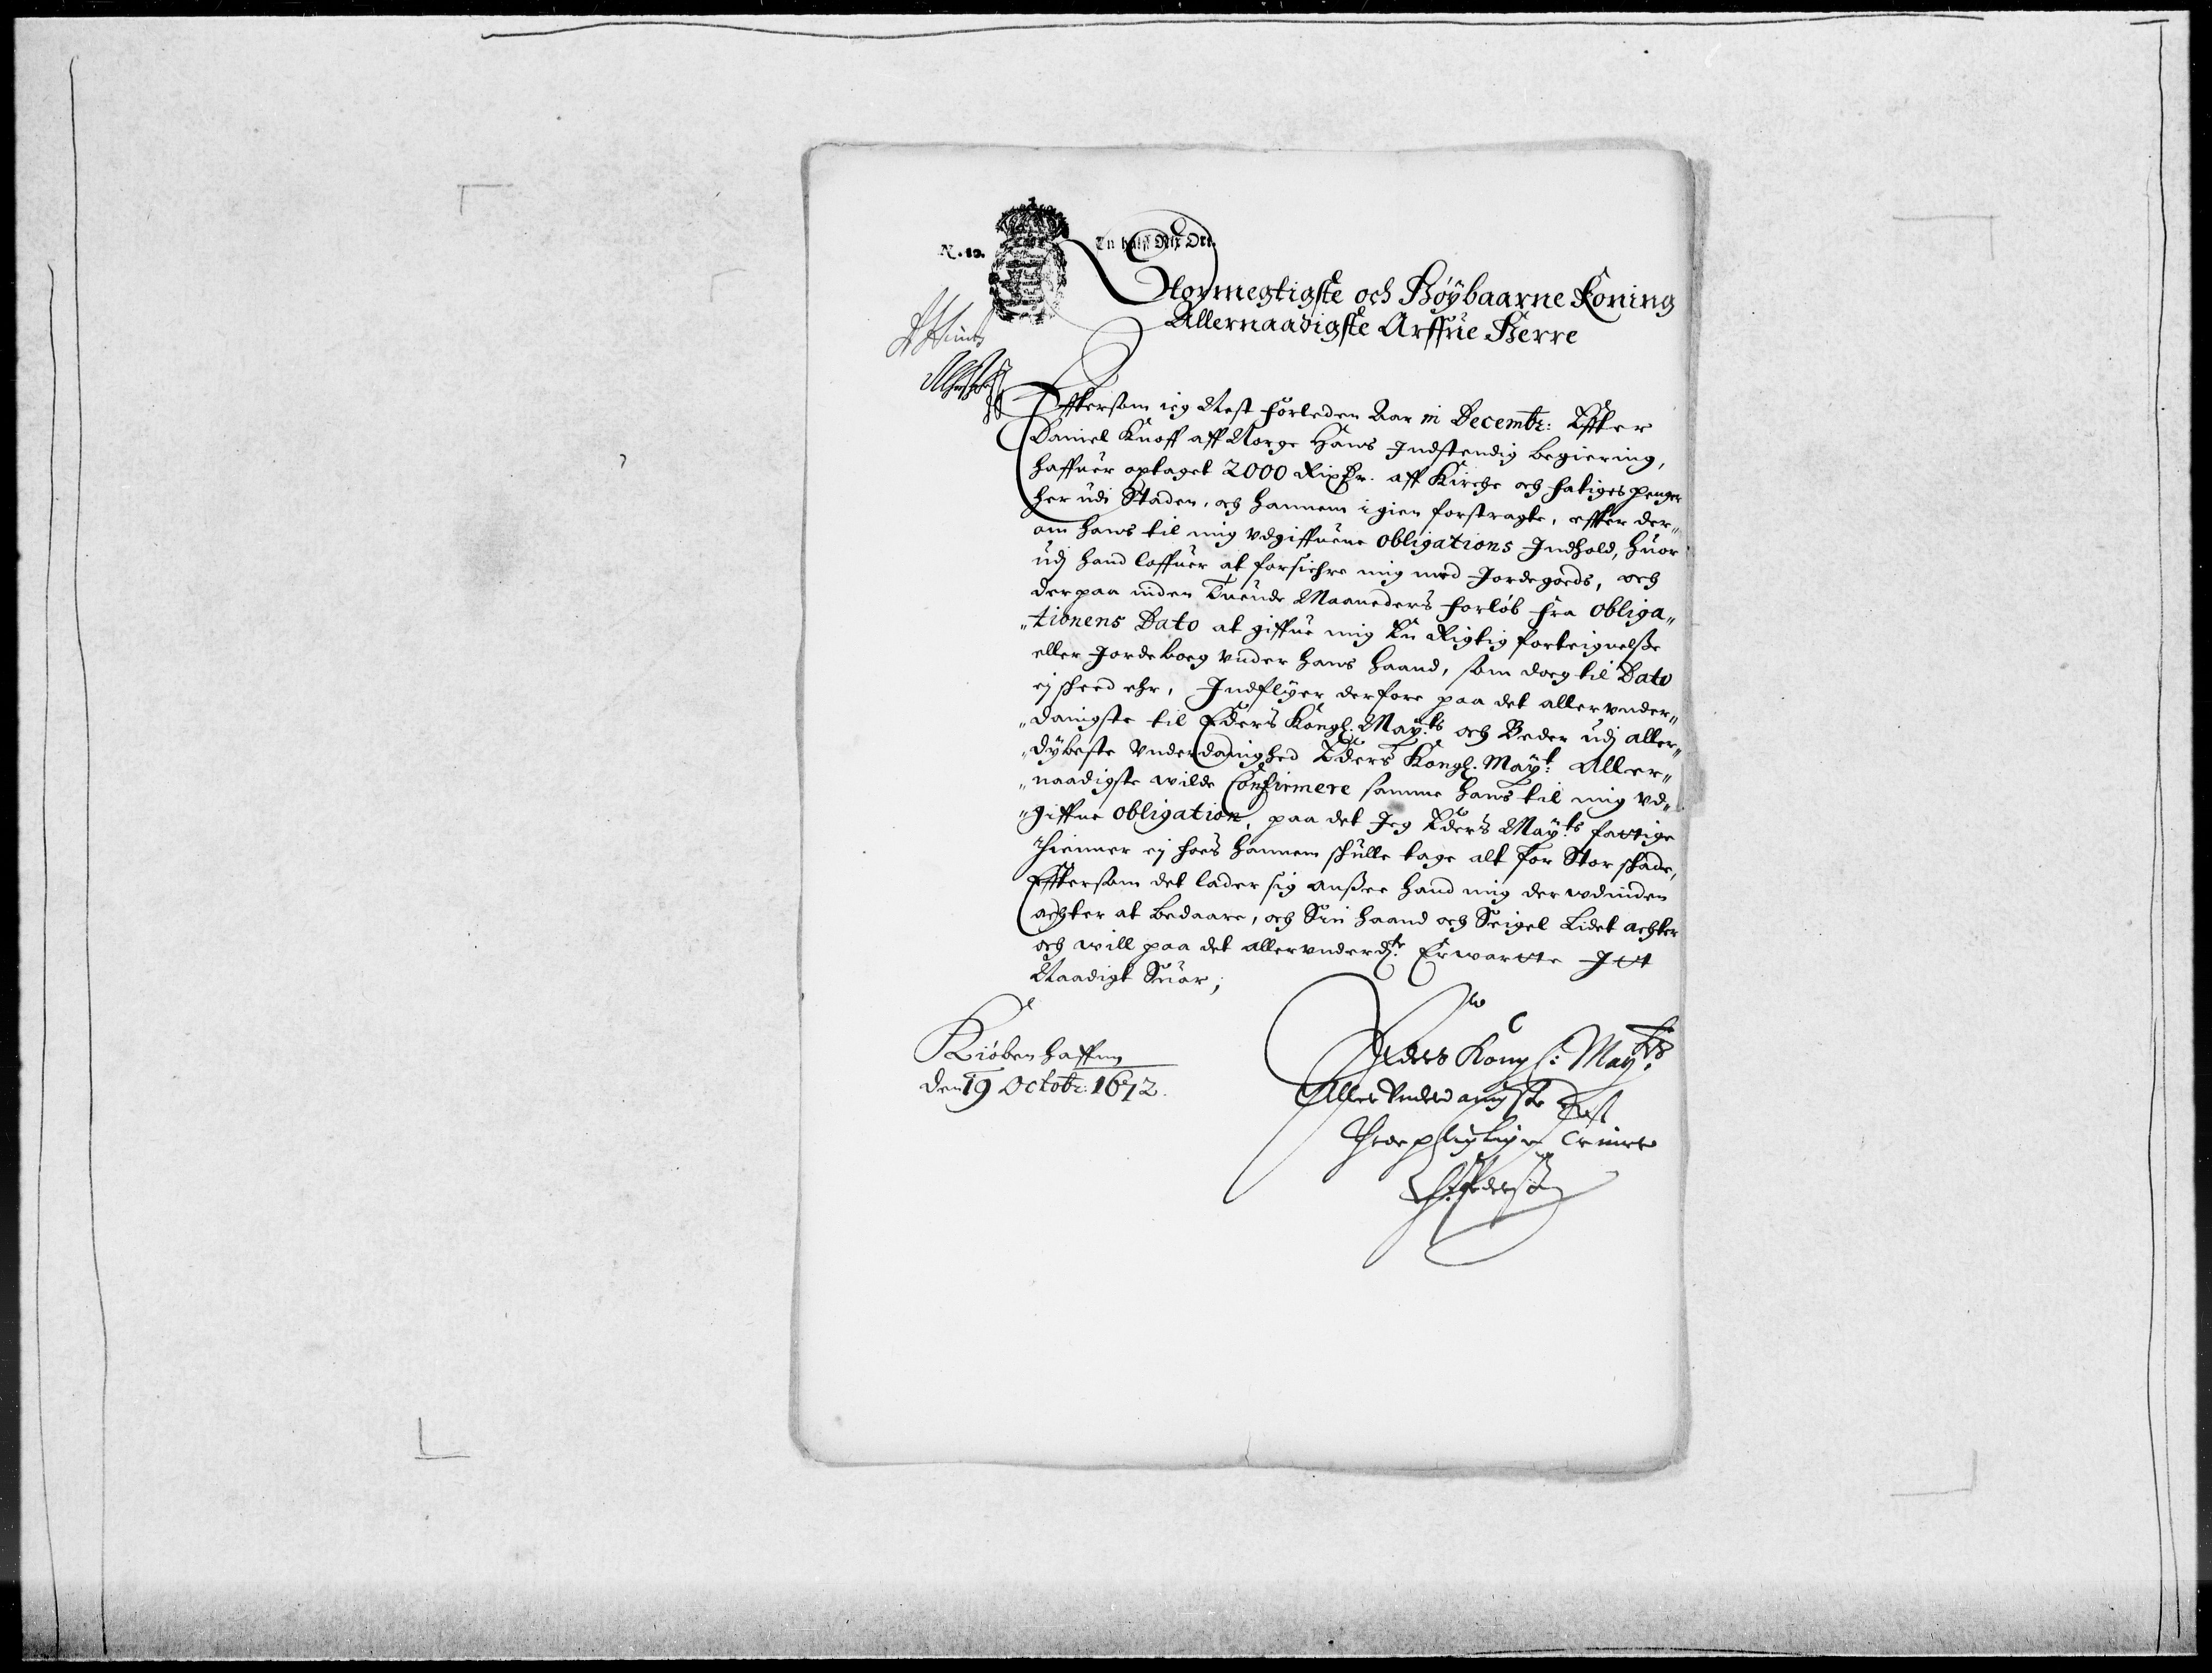 N. 10.
En halff Rix Ort.
Stormegtigste och Høÿbaarne Koning
Allernaadigste Arffue Herre
Efftersom ieg Nest forleden Aar in Decembr: Effter
Daniel Knoff aff Norge Hans Indstendig begiering,
haffuer optaget 2000 Rixdr. aff Kirche og fatiges penger
her udi Staden, och hannem igien forstragte, effter der„
om hans til mig vdgiffuene obligations Indhold, huor
udj hand loffuer at forsichre mig med Jordegods, och
derpaa inden Tuende Maaneders forløb fra obliga„
„tionens Dato at giffue mig En Rigtig forteignelse
eller Jordeboeg vnder hans haand, som doeg til Dato
ej scheed ehr, Indflÿer derfore paa det allervnder„
„danigste til Eders Kongl. Maÿ:ts och Beder udj aller„
„dÿbeste Vnderdanighed Eders Kongl. Maÿt: Aller„
„naadigste wilde Confirmere samme hans til mig vd„
„giffne obligation, paa det Jeg Eders Maÿ:ts fattige
Thienner ej hoes hannem schulle tage alt for Stor schade,
Efftersom det lader sig ansee hand mig der wdinden
achter at bedaare, och Sin haand och Seigel Lidet achter
och will paa det allervnderd:ste Erwartte Jtt
Naadigt Suar;
Kiøbenhaffn
den 19 Octobr: 1672.
Eders Kongl: Maÿ:ts
Aller Vnderdanigste
Throe pligtigste Tienner